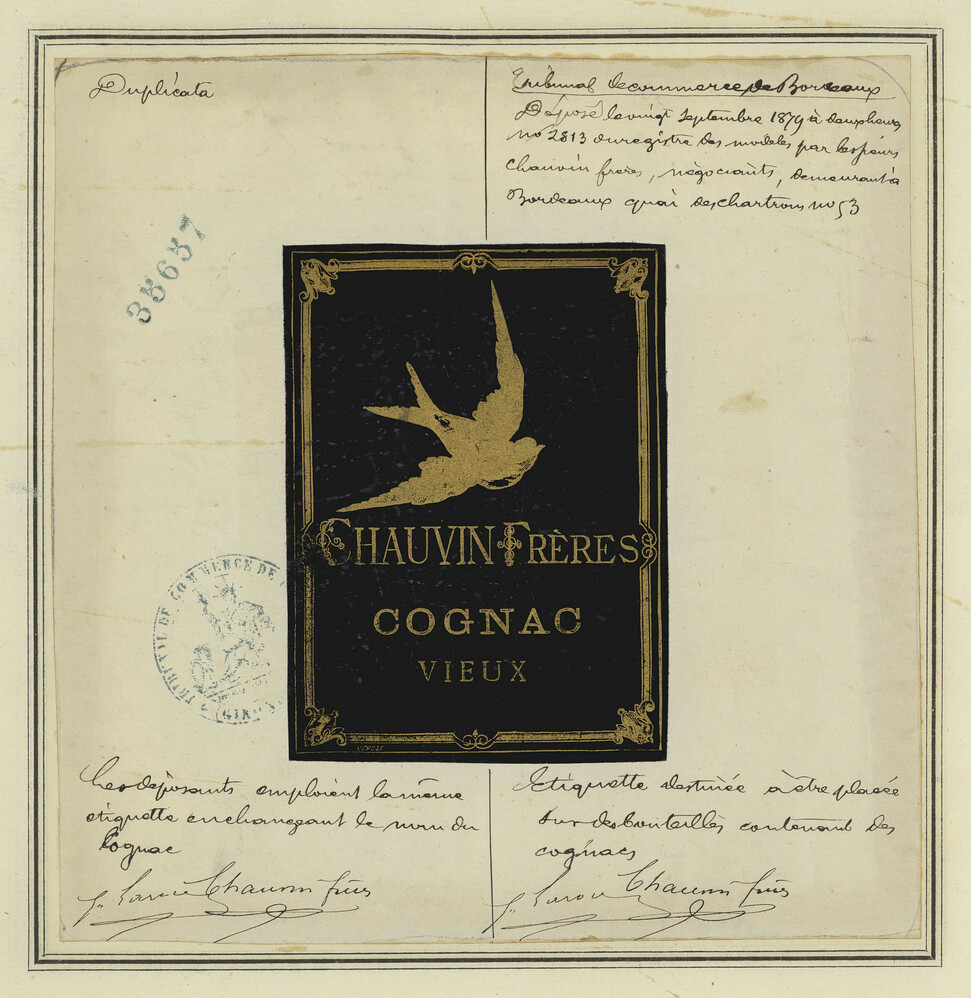 Duplicata
Tribunal de commerce de Bordeaux
Déposé le vingt Septembre 1879 à deux heures
no 2813 du registre des modèles par les sieurs
Chauvin frères, négociants, demeurant à
Bordeaux quai des chartrons no 53
35657
CHAUVIN FRÈRES
COGNAC
VIEUX
TRIBUNAL DE COMMERCE DE
Les déposants emploient la même
étiquette en changeant le nom du
Cognac
Chauvin frères
Etiquette destinée à être placée
sur des bouteilles contenant des
cognacs
Chauvin frères